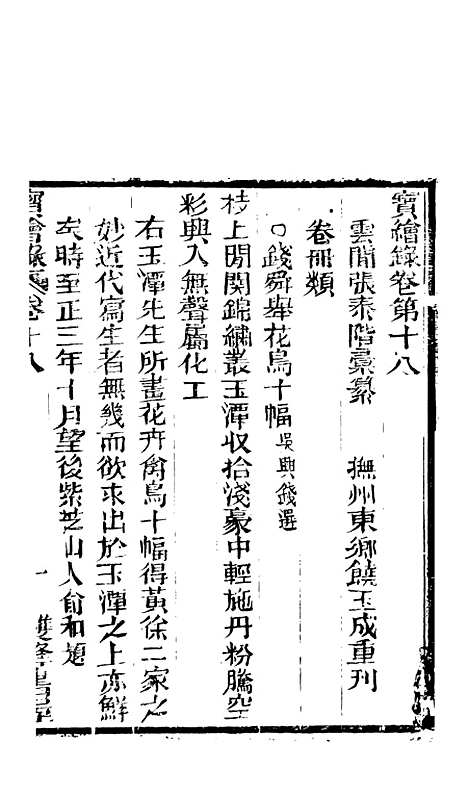 寶繪錄卷第十八
雲間張泰階彙纂　撫州東鄉饒玉成重刊
卷冊類
○錢舜舉花鳥十幅吳興錢選
枝上閒關錦繡叢玉潭収拾淺豪中輕施丹粉騰空
彩興入無聲屬化工
右玉潭先生所畫花卉禽鳥十幅得黃徐二家之
妙近代寫生者無幾而欲求出於玉潭之上亦鮮
矣時至正三年十月望後紫芝山人俞和題
寶繪錄 卷十八 一